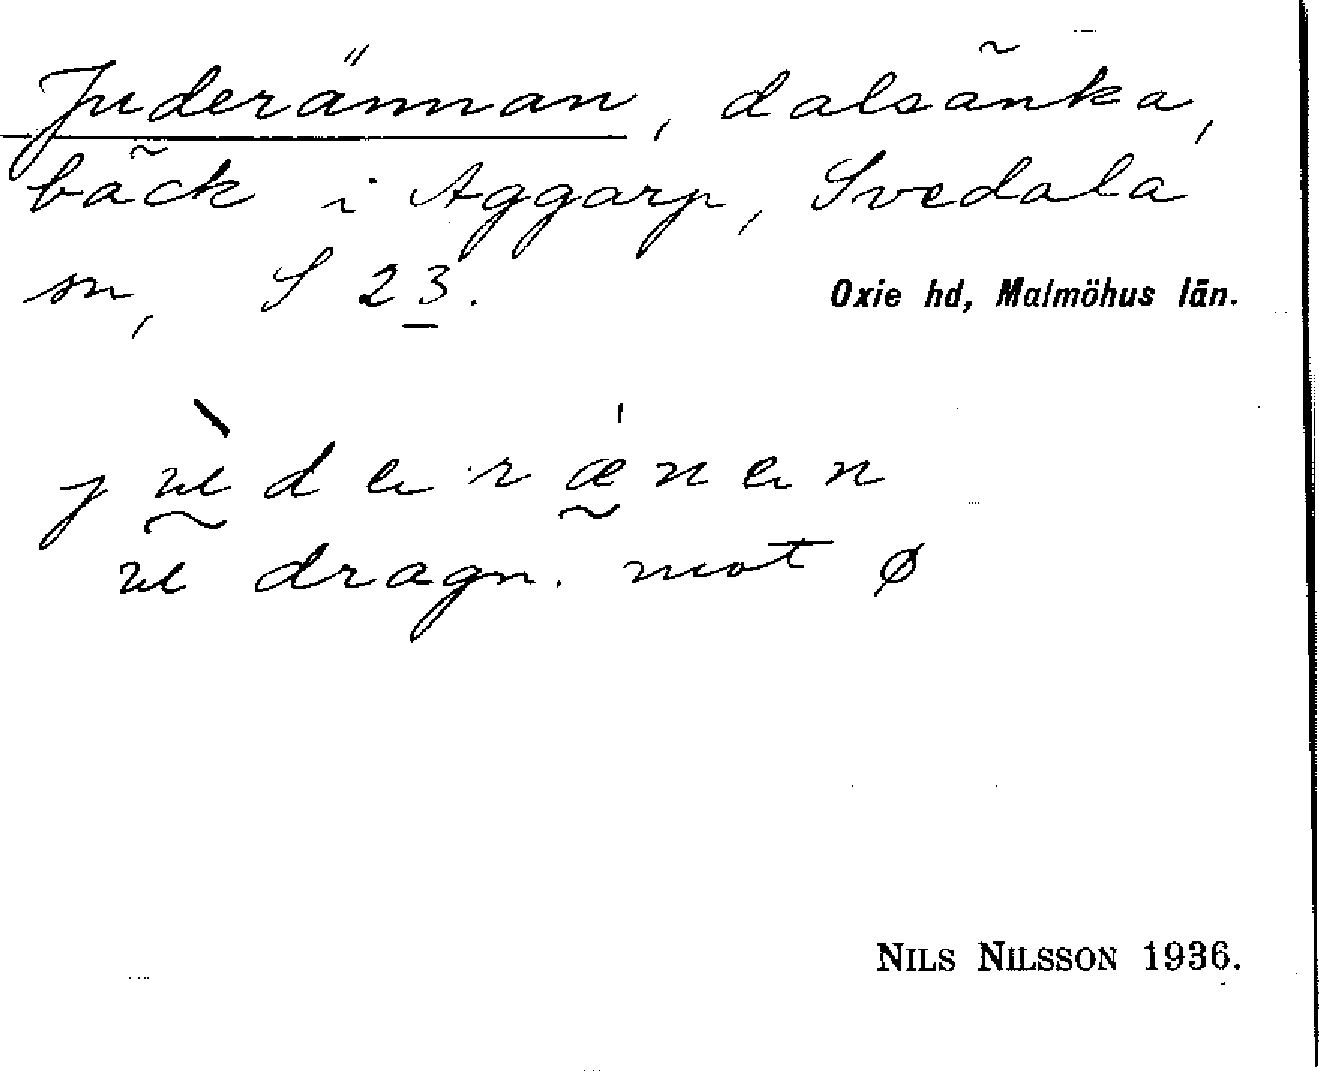 Juderännan, dalsänka,
bäck i Aggarp, Svedala
sn, S 23.
Oxie hd, Malmöhus län.
dragn. mot ø
NILS NILSSON 1936.